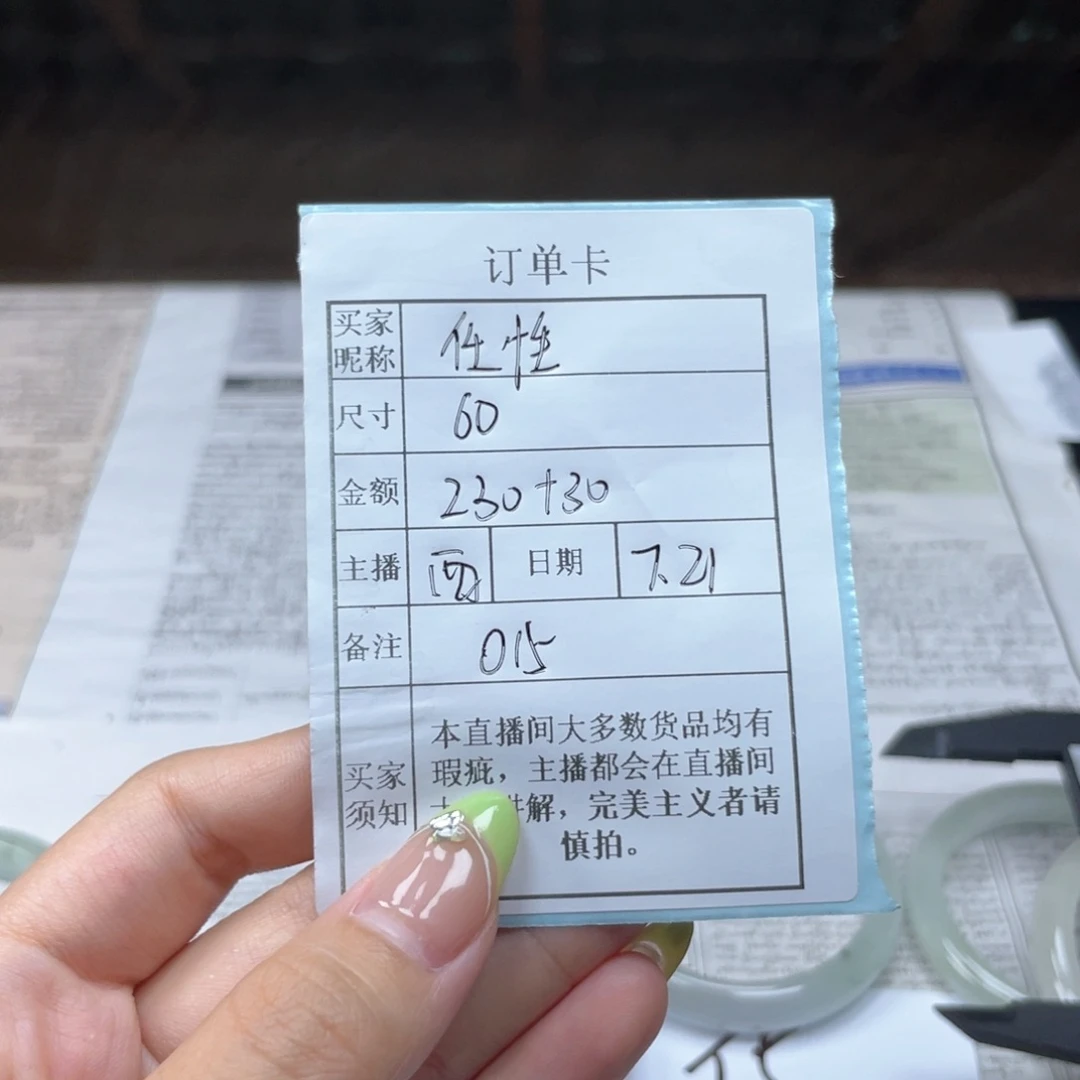 订单卡
买家昵称 任性
尺寸 60
金额 230+30
主播 西 日期 7.21
备注 015
买家须知
本直播间大多数货品均有
瑕疵，主播都会在直播间
解，完美主义者请
慎拍。